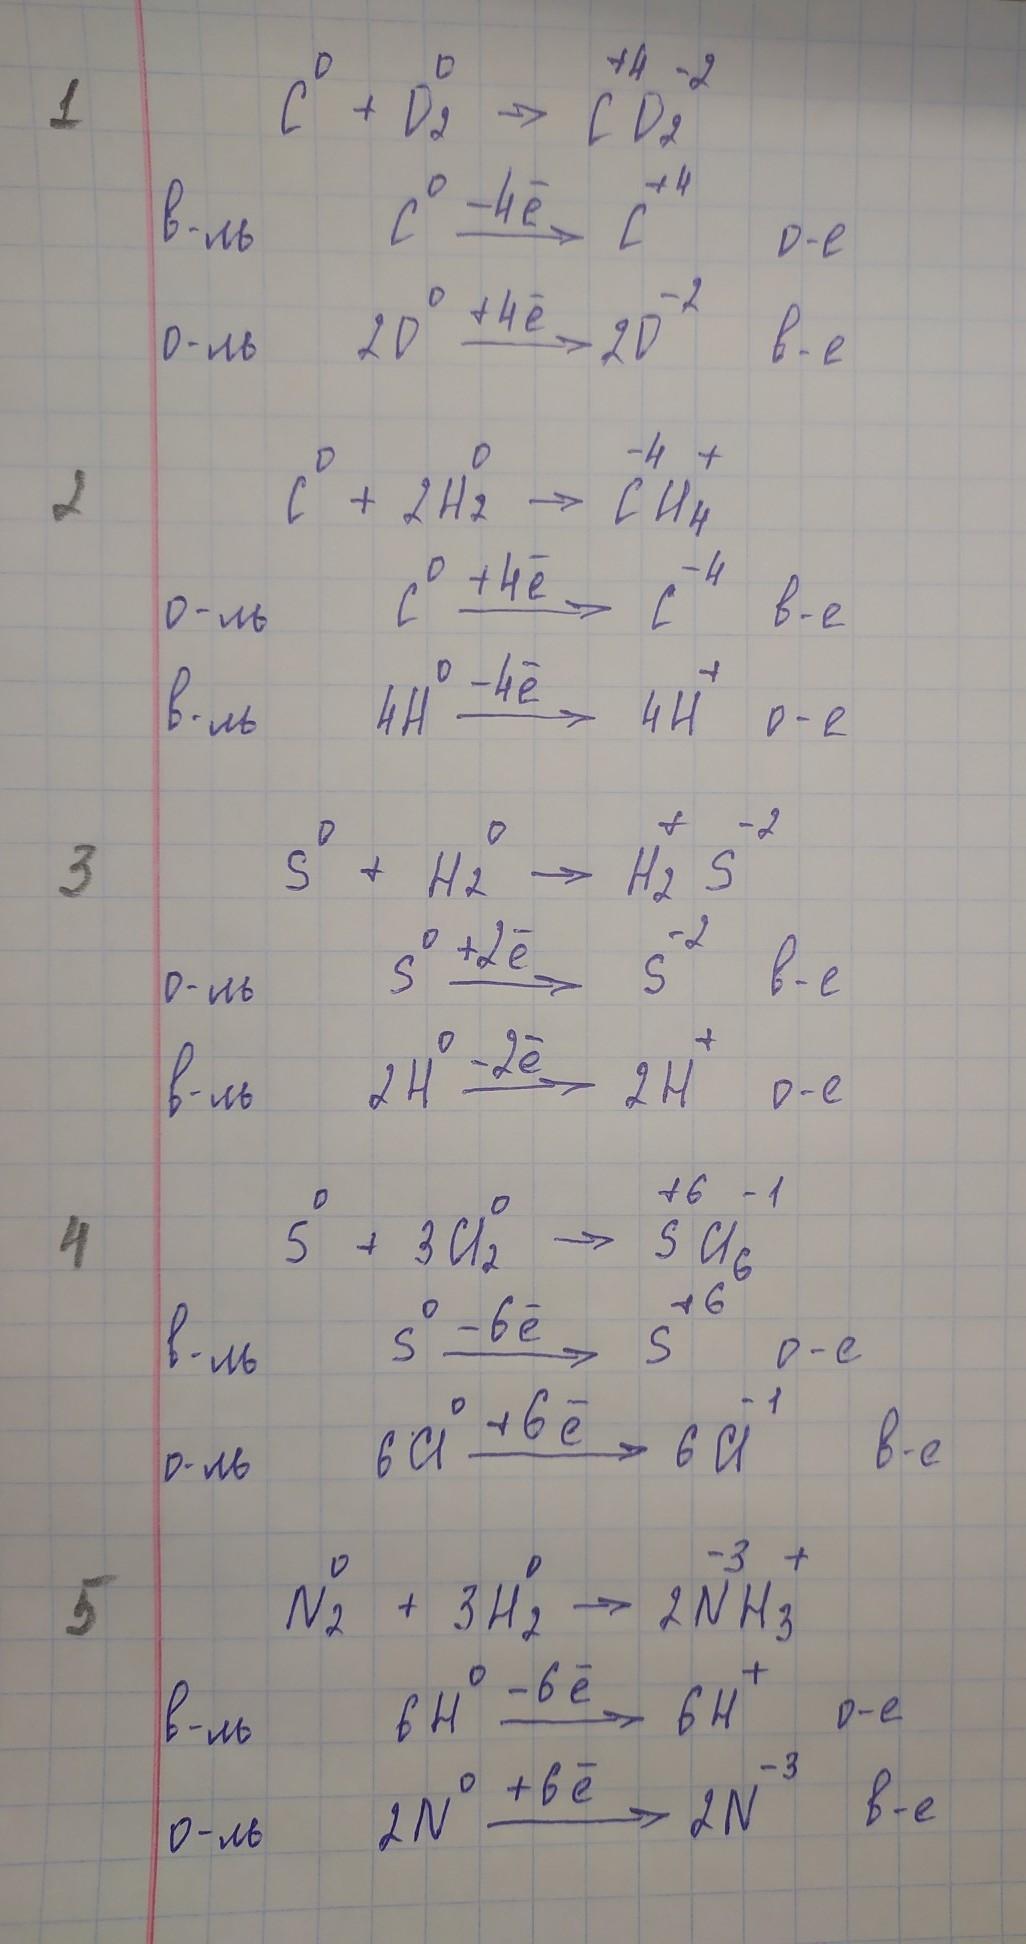 1 C⁰ + O₂⁰ → C⁺⁴O₂⁻²
в-ль C⁰ −4ē→ C⁺⁴ о-е
о-ль 2O⁰ +4ē→ 2O⁻² в-е
2 C⁰ + 2H₂⁰ → C⁻⁴H₄⁺
о-ль C⁰ +4ē→ C⁻⁴ в-е
в-ль 4H⁰ −4ē→ 4H⁺ о-е
3 S⁰ + H₂⁰ → H₂⁺S⁻²
о-ль S⁰ +2ē→ S⁻² в-е
в-ль 2H⁰ −2ē→ 2H⁺ о-е
4 S⁰ + 3Cl₂⁰ → S⁺⁶Cl₆⁻¹
в-ль S⁰ −6ē→ S⁺⁶ о-е
о-ль 6Cl⁰ +6ē→ 6Cl⁻¹ в-е
5 N₂⁰ + 3H₂⁰ → 2N⁻³H₃⁺
в-ль 6H⁰ −6ē→ 6H⁺ о-е
о-ль 2N⁰ +6ē→ 2N⁻³ в-е